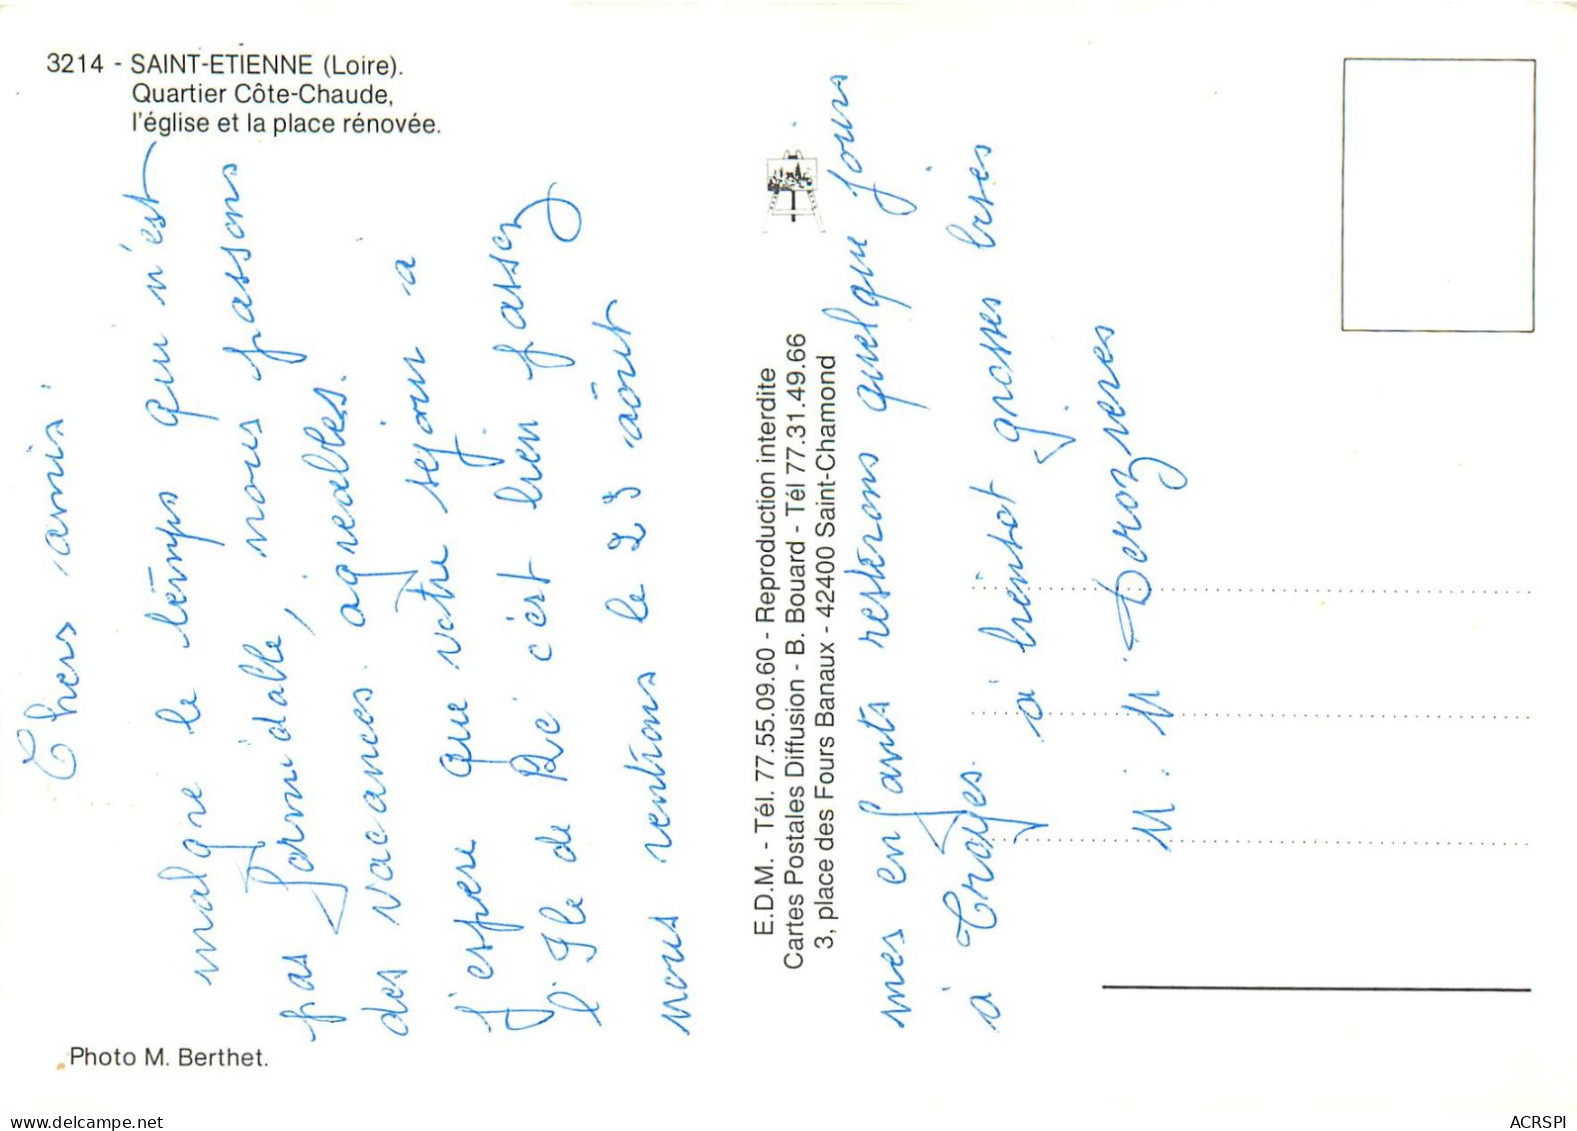 3214 - SAINT-ETIENNE (Loire).
Quartier Côte-Chaude,
l'église et la place rénovée.
Chers amis.
malgré le temps qui n'est
pas formidable, nous passons
des vacances agréables.
j'espère que votre sejour a
l'Ile de Ré c'est bien passer
nous rentrons le 23 août
E.D.M. - Tél. 77.55.09.60 - Reproduction interdite
Cartes Postales Diffusion - B. Bouard - Tél 77.31.49.66
3, place des Fours Banaux - 42400 Saint-Chamond
mes enfants resterons quelque jours
à Troyes. à bientot grosses bises
M. M. Derozieres
Photo M. Berthet.
www.delcampe.net
ACRSPI